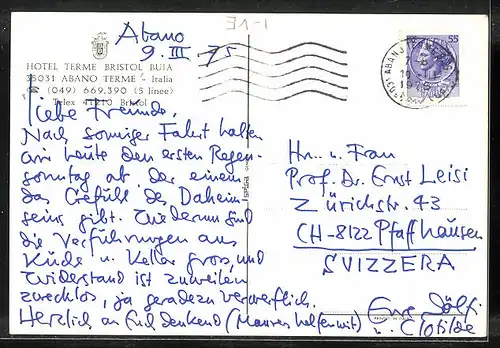 I-1 E
Abano
9. III 75
HOTEL TERME BRISTOL BUJA
35031 ABANO TERME - Italia
☎ (049) 669.390 (5 linee)
Telex 41210 Bristol
55
Liebe Freunde,
Nach sonniger Fahrt halten
wir heute den ersten Regen-
sonntag ab der einem
das Gefühl des Daheim
seins gibt. Wiederum sind
die Verführungen aus
Küche u. Keller gross, und
Widerstand ist zuweilen
zwecklos, ja geradezu verwerflich.
Herzlich an Euch denkend (Mauren helfen mit)
Hrn. u. Frau
Prof. Dr. Ernst Leisi
Zürichstr. 43
CH-8122 Pfaffhausen
SVIZZERA
Eure Dölf
u. Clotilde